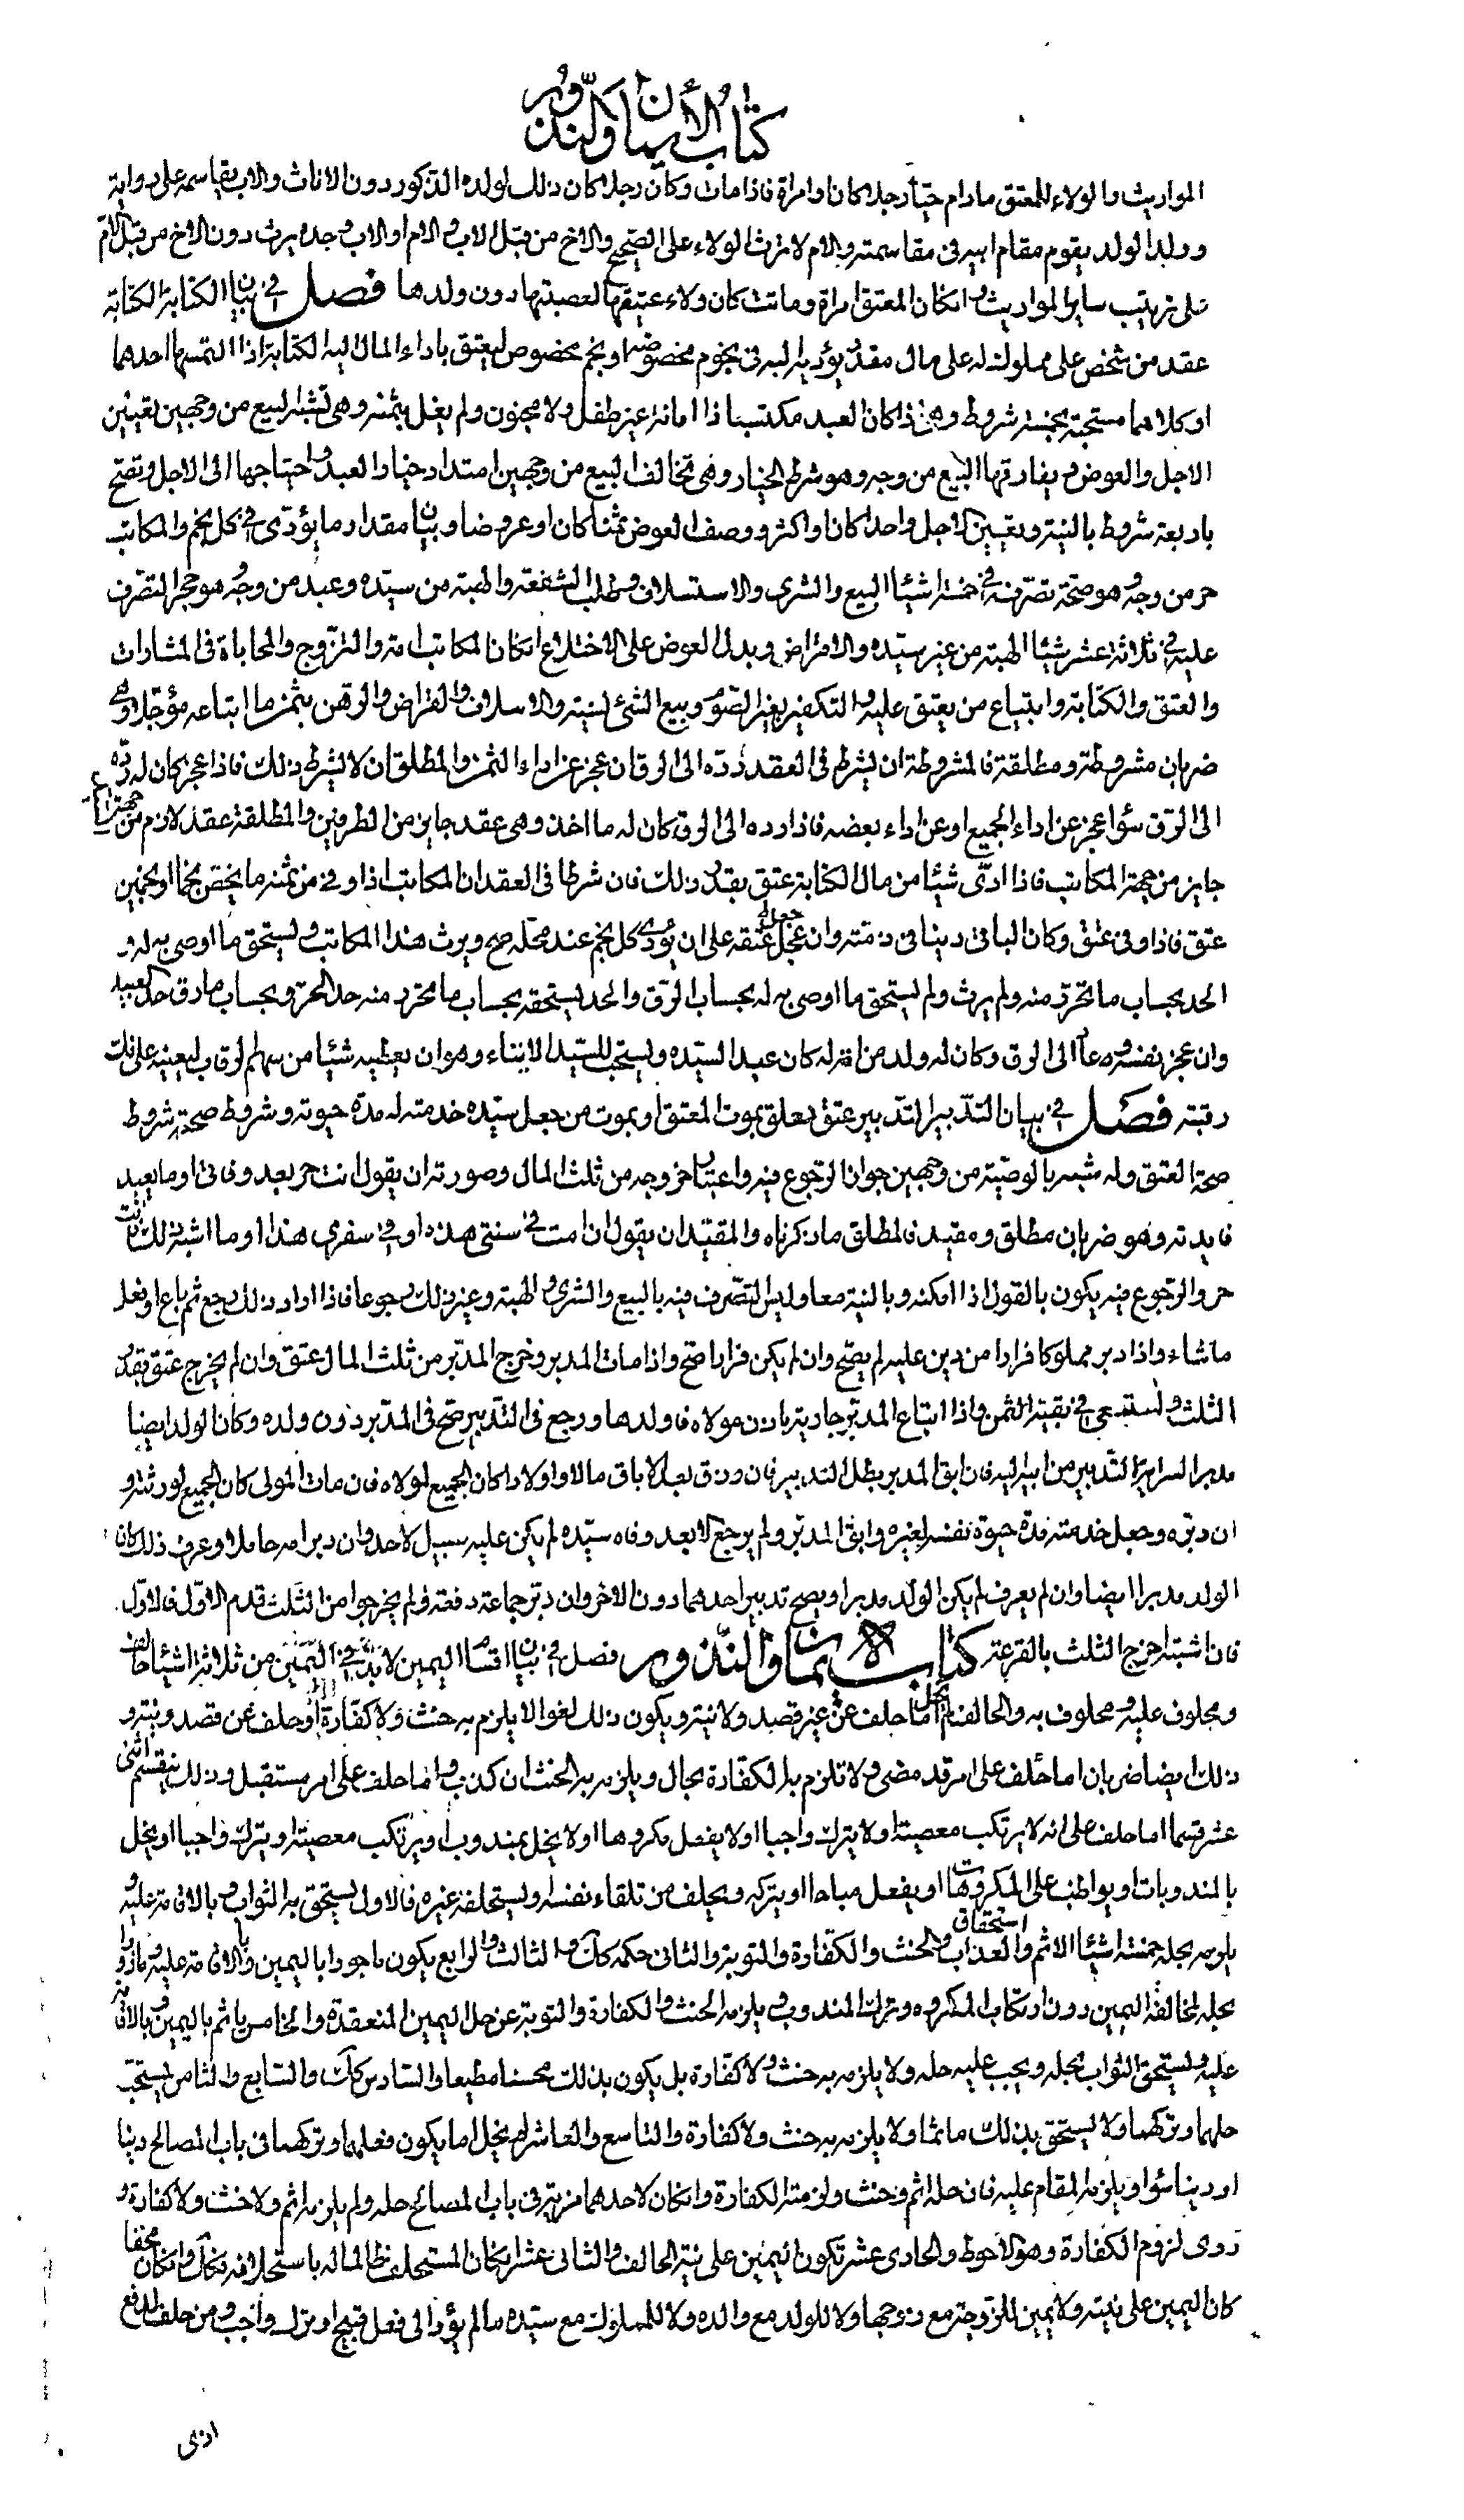 كتاب الأيمان والنذور
المواريث والولاء للمعتق مادام حيّا رجلا كان او امراة فاذا مات وكان رجلا كان ذلك لولده الذكور دون الاناث والاب يقاسمه على رواية
وولد الولد يقوم مقام ابيه في مقاسمته والام لا ترث الولاء على الصّحيح والاخ من قبل الاب والام او الاب وجده يرث دون الاخ من قبل الام
على ترتيب ساير المواريث وان كان المعتق امراة وماتت كان ولاء عتيقها لعصبتها دون ولدها فصل في بيان الكتابة الكتابة
عقد من شخص على مملوك له على مال مقدر يؤديه اليه في نجوم مخصوصة او نجم مخصوص ليعتق باداء المال اليه الكتابة اذا التمسها احدهما
او كلاهما مستحبة بخمسة شروط وهي اذا كان العبد مكتسبا ذا امانة غير طفل ولا مجنون ولم يغل بثمنه وهي تشبه البيع من وجهين تعيين
الاجل والعوض ويفارقها البيع من وجه وهو شرط الخيار وهي تخالف البيع من وجهين امتداد خيار العبد واحتياجها الى الاجل وتصح
باربعة شروط بالنية وتعيين الاجل واحدا كان او اكثر ووصف العوض ثمنا كان او عروضا وبيان مقدار ما يؤدّى في كل نجم والمكاتب
حر من وجه وهو صحة تصرفه في خمسة اشيا البيع والشرى والاستسلاف وطلب الشفعة والهبة من سيّده وعبد من وجه وهو حجر التصرف
عليه في ثلاثة عشر شيئا الهبة من غير سيّده والاقراض وبدل العوض على الاختلاع ان كان المكاتب امة والتزوج والمحاباة في المشارات
والعتق والكتابة وابتياع من يعتق عليه والتكفير بغير الصّوم وبيع الشئ نسية والاسلاف والقراض والرهن بثمن ما ابتاعه مؤجّلا وهي
ضربان مشروطة ومطلقة فالمشروطة ان يشرط في العقد ردّه الى الرق ان عجز عن اداء الثمن والمطلق ان لا يشرط ذلك فاذا عجز كان له ردّه
الى الرّق سوا عجز عن اداء الجميع او عن اداء بعضه فاذا رده الى الرق كان له ما اخذ وهي عقد جايز من الطرفين والمطلقة عقد لازم من جهة
جايز من جهة المكاتب فاذا ادّى شيئا من مال الكتابة عتق بقدر ذلك فان شرطا في العقد ان المكاتب اذا وفي من ثمنه ما يخص نجما او نجمين
عتق فاذا وفى عتق وكان الباقي دينا في ذمته وان عجل عتقه على ان يؤدى كل نجم عند محله صح ويرث هذا المكاتب ويستحق ما اوصى به له و
الحد بحساب ما تحرّر منه ولم يرث ولم يستحق ما اوصى به له بحساب الرّق والحد يستحقه بحساب ما تحرر منه حد الحرّ وبحساب ما رق حد العبيد
وان عجز نفسه ورد الى الرق وكان له ولد من امة له كان عبدا لسيّده ويستحب للسيّد الايتاء وهو ان يعطيه شيئا من سهم الرقاب ليعينه على فك
رقبته فصل في بيان التدبير التّدبير عتق معلق بموت المعتق او بموت من جعل سيّده خدمته له مدّة حيوته وشروط صحته شروط
صحة العتق وله شبه بالوصيّة من وجهين جواز الرّجوع فيه واعتبار خروجه من ثلث المال وصورته ان يقول انت حر بعد وفاتى او ما يفيد
فايدته وهو ضربان مطلق ومقيد فالمطلق ما ذكرناه والمقيّد ان يقول ان مت في سنتي هذه او في سفري هذا او ما اشبه ذلك فانت
حر والرّجوع فيه يكون بالقول اذا امكنه وبالنية معا وليس التصّرف فيه بالبيع والشرى والهبة وغير ذلك رجوعا فاذا اراد ذلك رجع ثم باع او فعل
ما شاء واذا دبر مملوكا فرارا من دين عليه لم يصّح وان لم يكن فرارا صّح واذا مات المدبر وخرج المدبّر من ثلث المال عتق وان لم يخرج عتق بقدر
الثلث واستسعى في بقية الثمن واذا ابتاع المدبّر جارية باذن مولاه فاولدها ورجع في التّدبير صّح في المدّبر دون ولده وكان الولد ايضا
مدبرا لسراية التّدبير من ابيه اليه فان ابق المدبر بطل التدبير فان رزق بعد الاباق مالا واولادا كان الجميع لمولاه فان مات المولى كان الجميع لورثته و
ان دبّره وجعل خدمته مدّة حيوة نفسه لغيره وابق المدبّر ولم يرجع الا بعد وفاه سيّده لم يكن عليه سبيل لاحد وان دبر امه حاملا وعرف ذلك كان
الولد مدبرا ايضا وان لم يعرف لم يكن الولد مدبرا ويصح تدبير احدهما دون الاخر وان دبّر جماعة دفعة ولم يخرجوا من الثلث قدم الاوّل فالاوّل
فان اشتبه اخرج الثلث بالقرعة كتاب الأيمان والنّذور فصل في بيان اقسام اليمين لا بدّ في اليمين من ثلاثة اشيا حالف
ومحلوف عليه ومحلوف به والحالف اما حلف عن غير قصد ولا نية ويكون ذلك لغوا لا يلزم به حنث ولا كفّارة او حلف عن قصد ونية و
ذلك ايضا ضربان اما حلف على امر قد مضى ولا تلزم به الكفّارة بحال ويلزمه به الحنث ان كذب واما حلف على امر مستقبل وذلك ينقسم اثنى
عشر قسما اما حلف على انه لا يرتكب معصية او لا يترك واجبا او لا يفعل مكروها او لا يخل بمندوب او يرتكب معصية او يترك واجبا او يخل
بالمندوبات او يواظب على المكروهات او يفعل مباحا او يتركه ويحلف من تلقاء نفسه او يستحلفه غيره فالاولى يستحق به الثواب وبالاقامة عليه و
يلزمه بحله خمسة اشيا الاثم واستحقاق العذاب والحنث والكفّارة والتوبة والثاني حكمه كك والثالث والرابع يكون ماجورا باليمين وبالاقامة عليه ومازورا
بحله لمخالفة اليمين دون ارتكاب المكروه وترك المندوب ويلزمه الحنث والكفارة والتوبة عن حل اليمين المنعقدة والخامس ياثم باليمين وبالاقامة
عليه ويستحق الثواب بحله ويجب عليه حله ولا يلزمه به حنث ولا كفّارة بل يكون بذلك محسنا مطيعا والسّادس كك والسّابع والثامن يستحب
حلهما وتركهما ولا يستحق بذلك ماثما ولا يلزمه به حنث ولا كفارة والتاسع والعاشر لم يخل اما يكون فعلهما وتركهما في باب المصالح دينا
او دنيا سوا ويلزمه المقام عليه فان حله اثم وحنث ولزمته الكفارة وان كان لاحدهما مزية في باب المصالح حله ولم يلزمه اثم ولا حنث ولا كفارة و
روى لزوم الكفارة وهو الاحوط والحادى عشر تكون اليمين على نية الحالف والثاني عشر ان كان المستحلف ظالما له باستحلافه فكك وان كان محقا
كان اليمين على نيته ولا يمين للزّوجة مع زوجها ولا للولد مع والده ولا للمملوك مع سيّده ما لم يؤد الى فعل قبيح او ترك واجب ومن حلف لدفع
اذى